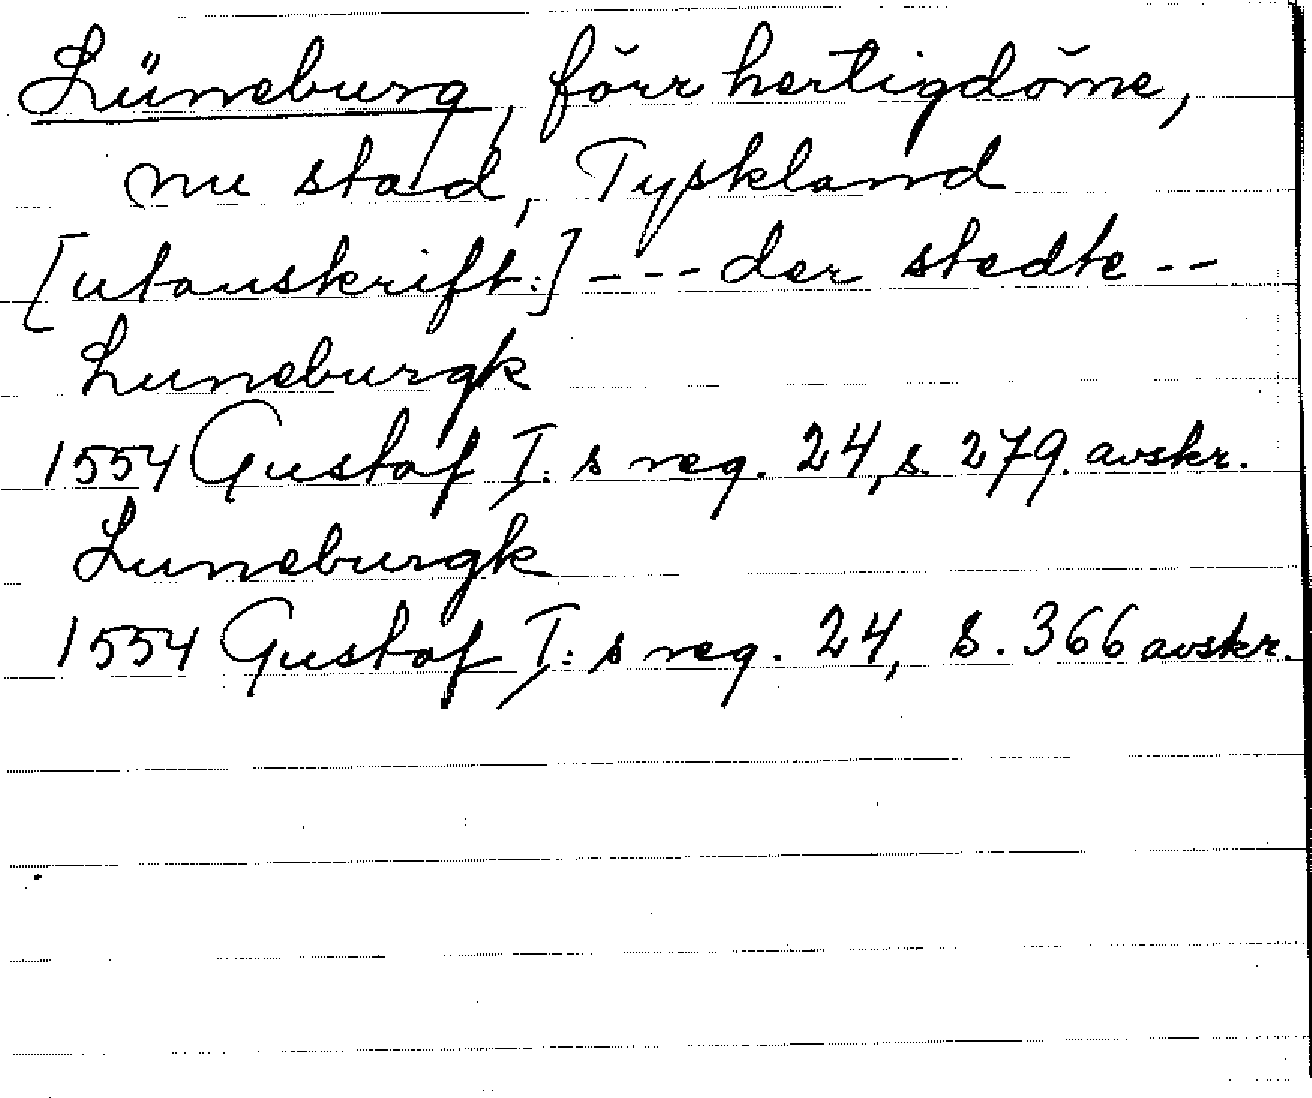 Lüneburg, förr hertigdöme,
nu stad, Tyskland
[utanskrift:] --- der stedte --
Luneburgk
1554 Gustaf I:s reg. 24, s. 279. avskr.
Luneburgk
1554 Gustaf I:s reg. 24, s. 366 avskr.